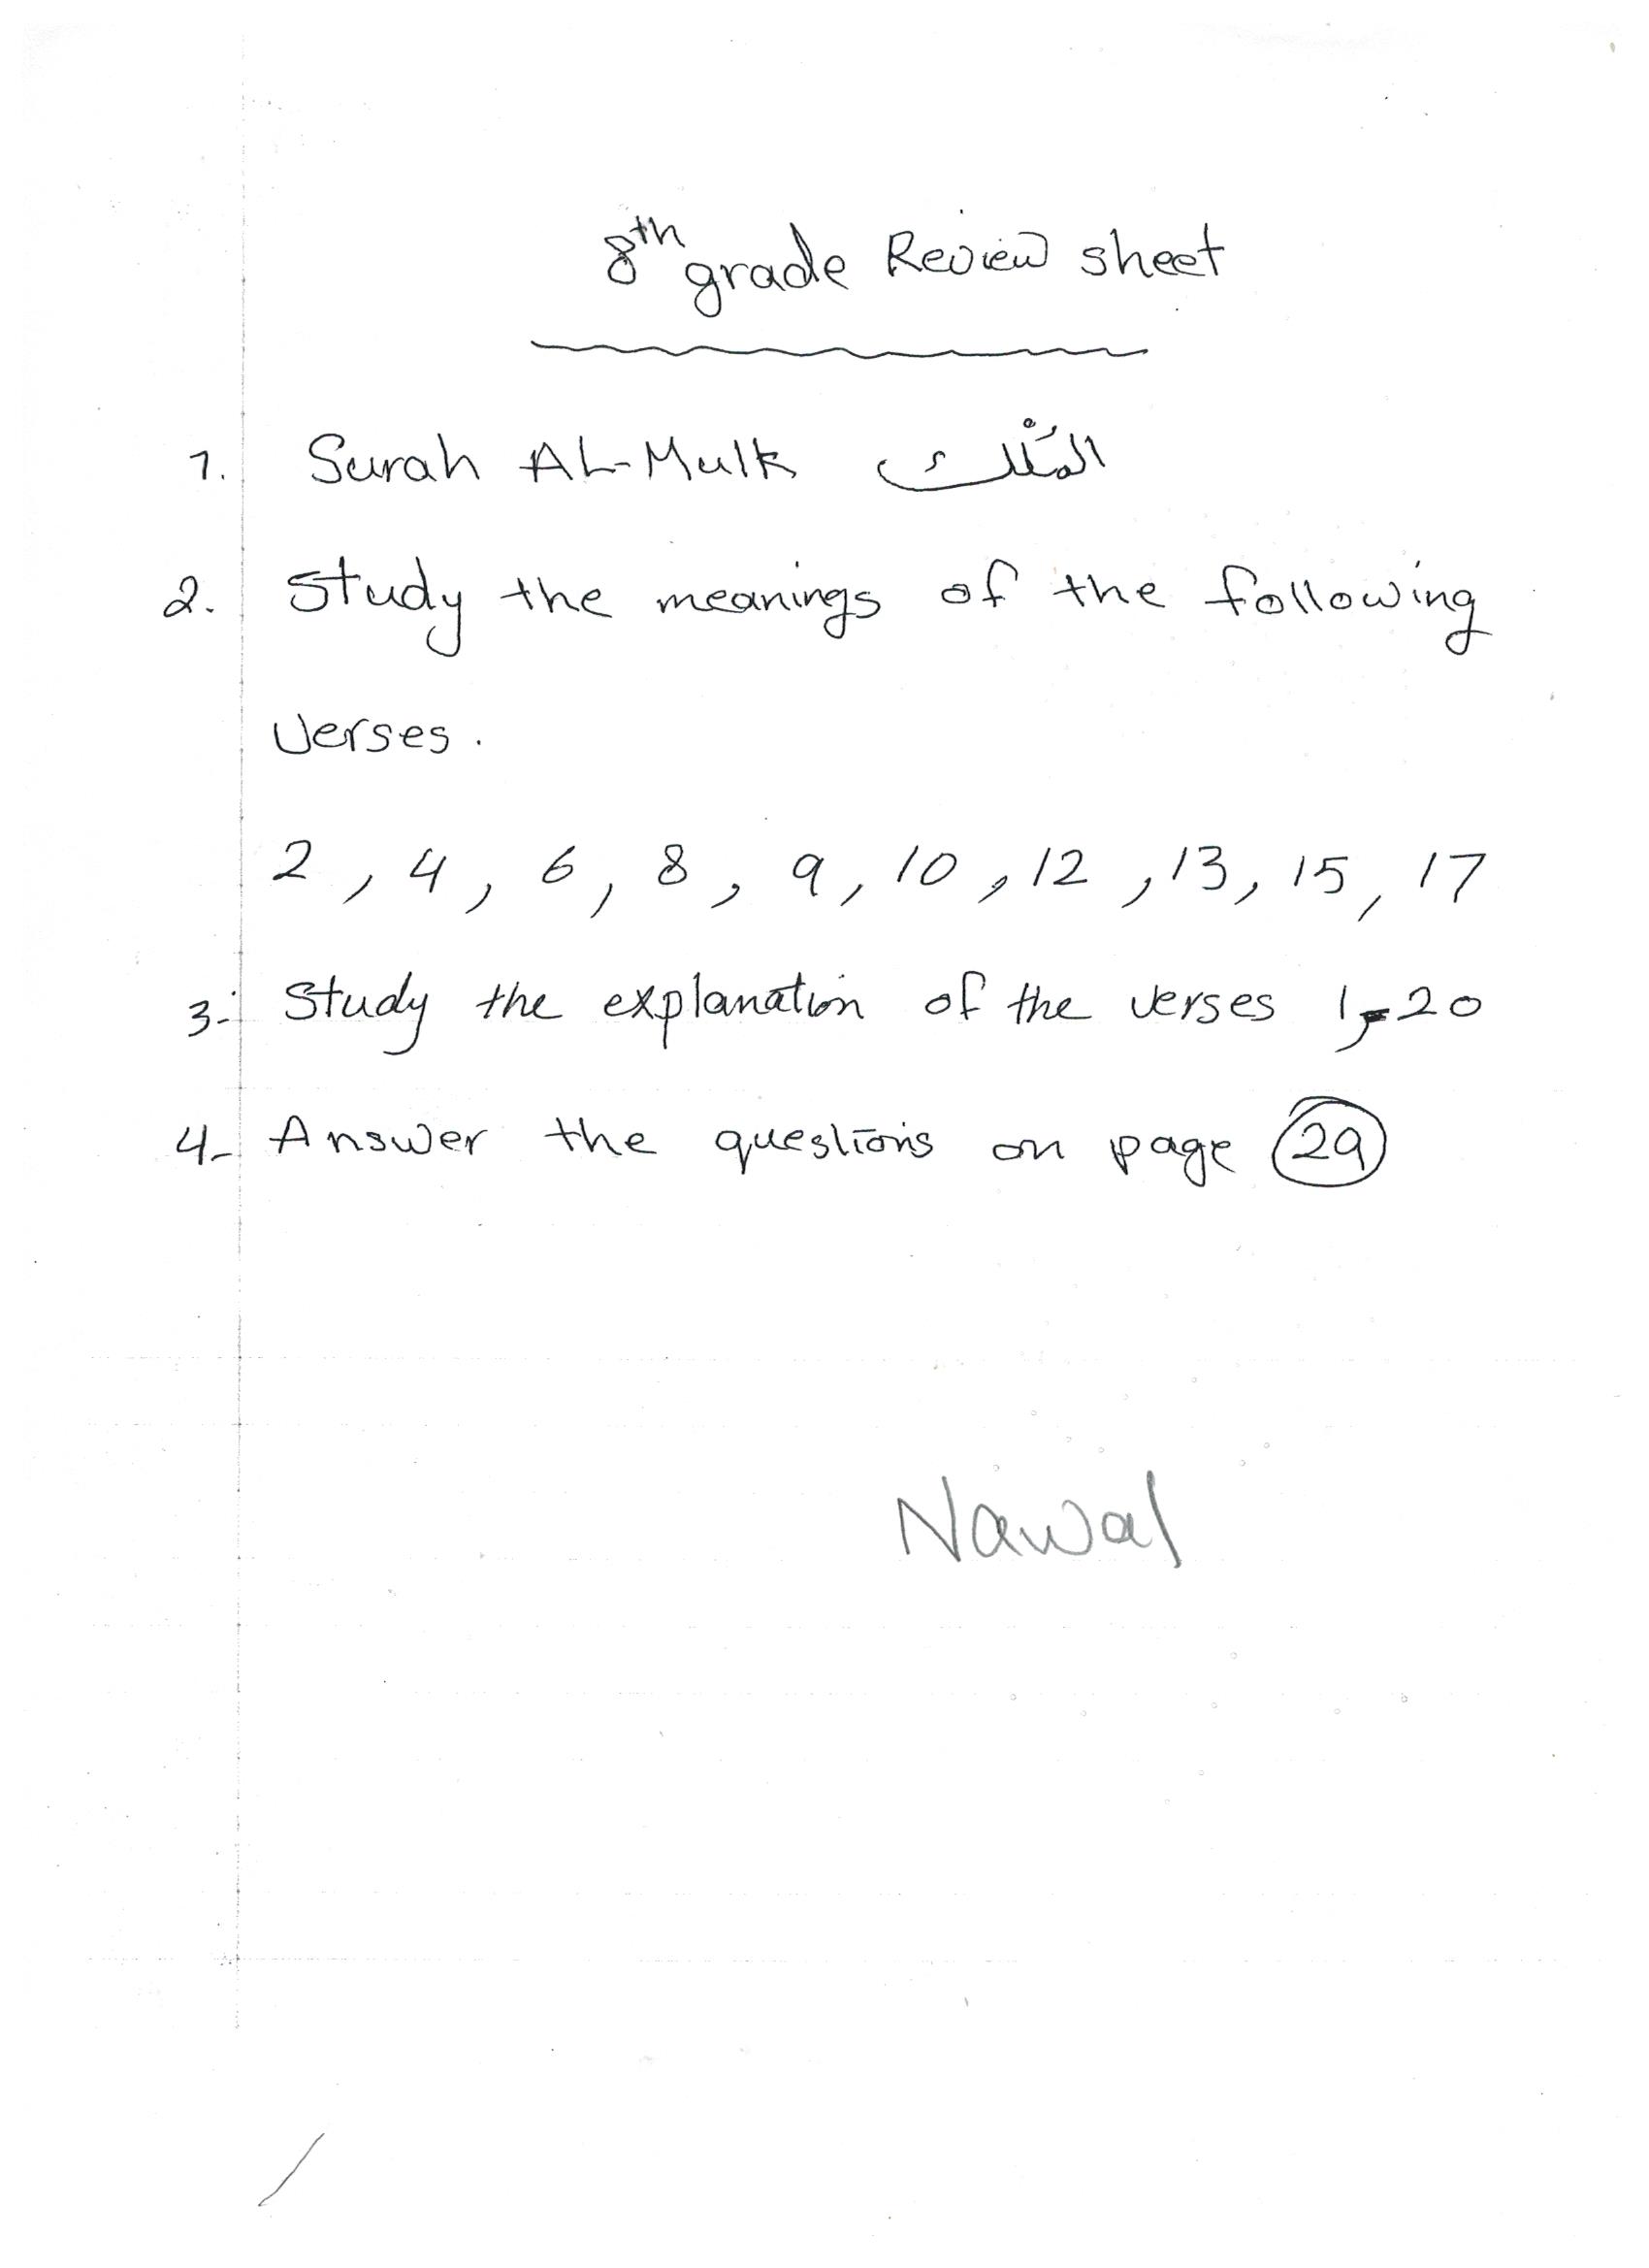 8th grade Review sheet
1. Surah AL-Mulk المُلْك
2. Study the meanings of the following
verses.
2, 4, 6, 8, 9, 10, 12, 13, 15, 17
3- Study the explanation of the verses 1-20
4- Answer the questions on page 29
Nawal